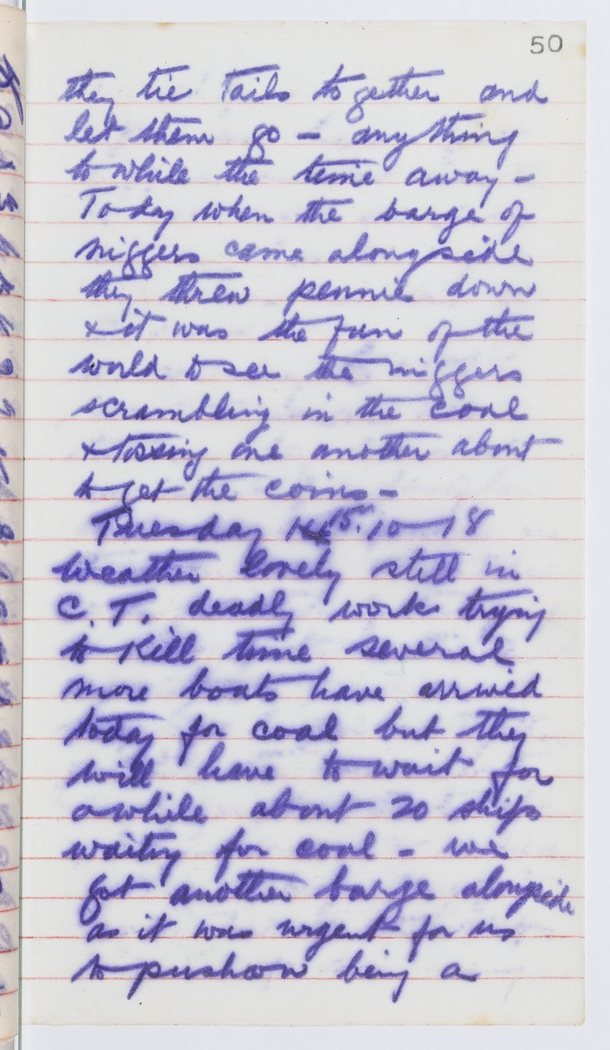 50
they tie tails together and
let them go - anything
to while the time away -
Today when the barge of
niggers came alongside
they threw pennies down
& it was the fun of the
world to see the niggers
scrambling in the coal
& tossing one another about
to get the coins -
Tuesday 15.10-18
Weather lovely still in
C.T. deadly works trying
to kill time several
more boats have arrived
today for coal but they
will have to wait for
awhile about 20 ships
waiting for coal - we
got another barge alongside
as it was urgent for us
to push on being a